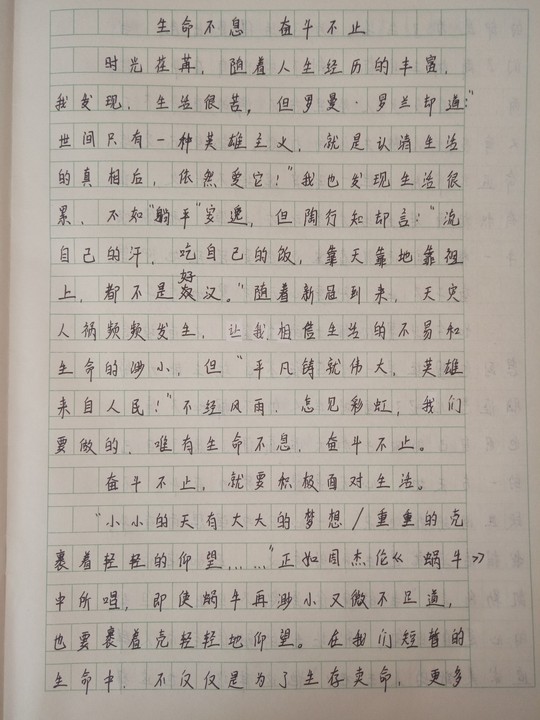 生命不息 奋斗不止
时光荏苒，随着人生经历的丰富，
我发现，生活很苦，但罗曼·罗兰却道："
世间只有一种英雄主义，就是认清生活
的真相后，依然爱它！"我也发现生活很
累，不如"躺平"安逸，但陶行知却言："流
自己的汗，吃自己的饭，靠天靠地靠祖
上，都不是好汉。"随着新冠到来，天灾
人祸频频发生，让我相信生活的不易和
生命的渺小，但"平凡铸就伟大，英雄
来自人民！"不经风雨，怎见彩虹，我们
要做的，唯有生命不息，奋斗不止。
奋斗不止，就要积极面对生活。
"小小的天有大大的梦想/重重的壳
裹着轻轻的仰望……"正如周杰伦《蜗牛》
中所唱，即使蜗牛再渺小又微不足道，
也要裹着壳轻轻地仰望。在我们短暂的
生命中，不仅仅是为了生存卖命，更多